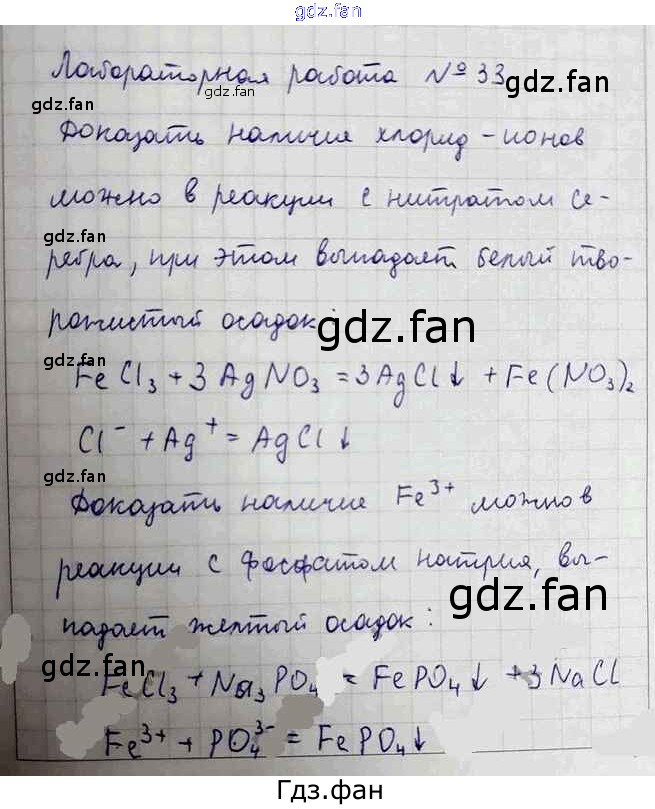 gdz.fan
Лабораторная работа №33
gdz.fan
gdz.fan
gdz.fan
Доказать наличия хлорид-ионов
можно в реакции с нитратом се-
gdz.fan
ребра, при этом выпадает белый тво-
рожистый осадок:
gdz.fan
gdz.fan
FeCl₃ + 3AgNO₃ = 3AgCl↓ + Fe(NO₃)₂
Cl⁻ + Ag⁺ = AgCl↓
gdz.fan
Доказать наличие Fe³⁺ можно в
реакции с фосфатом натрия, вы-
gdz.fan
gdz.fan
падает желтый осадок:
gdz.fan
FeCl₃ + Na₃PO₄ = FePO₄↓ + 3NaCl
Fe³⁺ + PO₄³⁻ = FePO₄↓
Гдз.фан